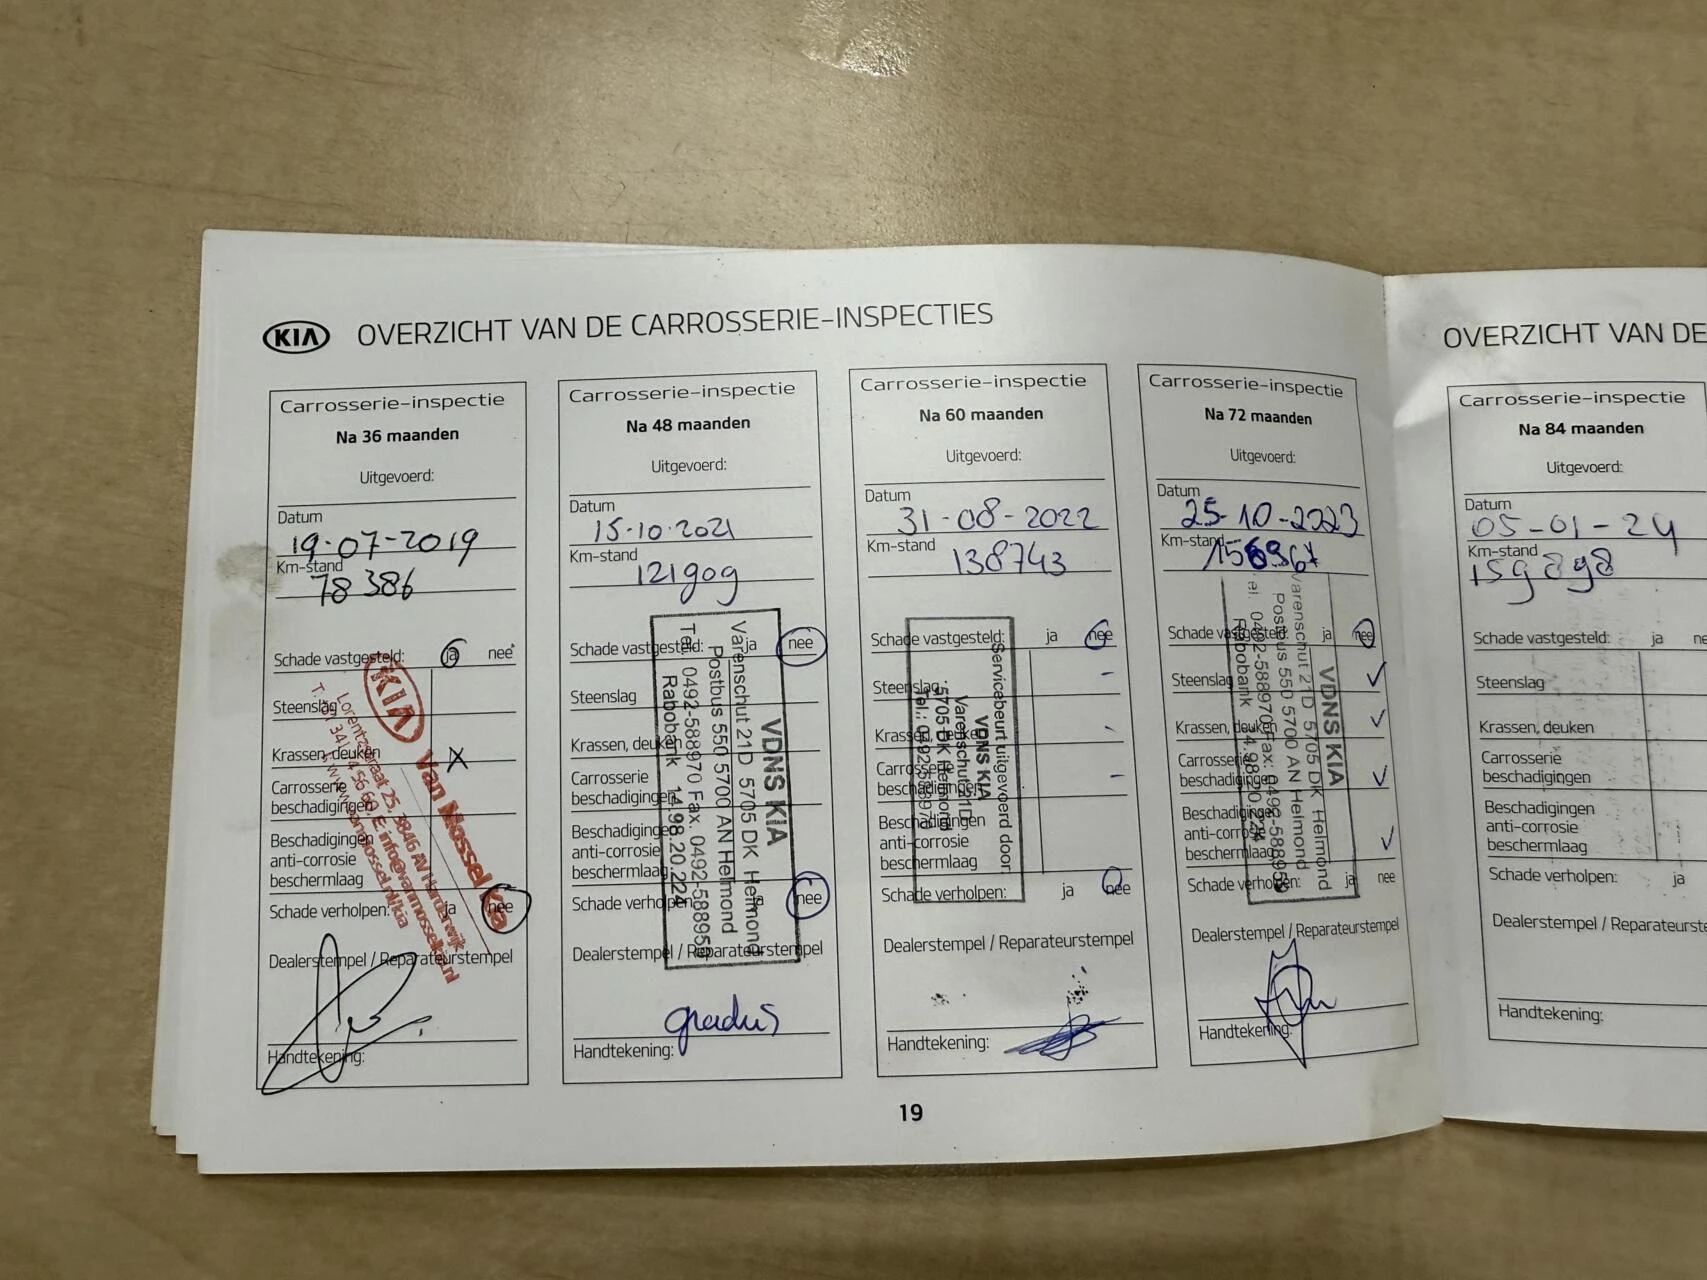 KIA OVERZICHT VAN DE CARROSSERIE-INSPECTIES
Carrosserie-inspectie
Na 36 maanden
Uitgevoerd:
Datum
19-07-2019
Km-stand
78386
Schade vastgesteld: ja nee
Steenslag
Krassen, deuken X
Carrosserie
beschadigingen
Beschadigingen
anti-corrosie
beschermlaag
Schade verholpen: ja nee
Dealerstempel / Reparateurstempel
Handtekening:
KIA
Van Mossel Kia
Lorentzstraat 25, 3846 AV Harderwijk
Carrosserie-inspectie
Na 48 maanden
Uitgevoerd:
Datum
15-10-2021
Km-stand
121909
Schade vastgesteld: ja nee
Steenslag
Krassen, deuken
Carrosserie
beschadigingen
Beschadigingen
anti-corrosie
beschermlaag
Schade verholpen: ja nee
Dealerstempel / Reparateurstempel
gradus
Handtekening:
VDNS KIA
Varenschut 21D 5705 DK Helmond
Postbus 550 5700 AN Helmond
Tel. 0492-588970 Fax. 0492-588958
Rabobank 14.98.20.224
Carrosserie-inspectie
Na 60 maanden
Uitgevoerd:
Datum
31-08-2022
Km-stand
138743
Schade vastgesteld: ja nee
Steenslag -
Krassen, deuken -
Carrosserie
beschadigingen -
Beschadigingen
anti-corrosie
beschermlaag
Schade verholpen: ja nee
Dealerstempel / Reparateurstempel
Handtekening:
Servicebeurt uitgevoerd door:
VDNS KIA
Varenschut 21D
5705 DK Helmond
Carrosserie-inspectie
Na 72 maanden
Uitgevoerd:
Datum
25-10-2023
Km-stand
Schade vastgesteld: ja nee
Steenslag ✓
Krassen, deuken ✓
Carrosserie
beschadigingen ✓
Beschadigingen
anti-corrosie
beschermlaag ✓
Schade verholpen: ja nee
Dealerstempel / Reparateurstempel
Handtekening:
VDNS KIA
Varenschut 21D 5705 DK Helmond
Postbus 550 5700 AN Helmond
Tel. 0492-588970 Fax. 0492-588958
Rabobank 14.98.20.224
19
OVERZICHT VAN DE
Carrosserie-inspectie
Na 84 maanden
Uitgevoerd:
Datum
05-01-24
Km-stand
159898
Schade vastgesteld: ja
Steenslag
Krassen, deuken
Carrosserie
beschadigingen
Beschadigingen
anti-corrosie
beschermlaag
Schade verholpen: ja
Dealerstempel / Reparateurste
Handtekening: